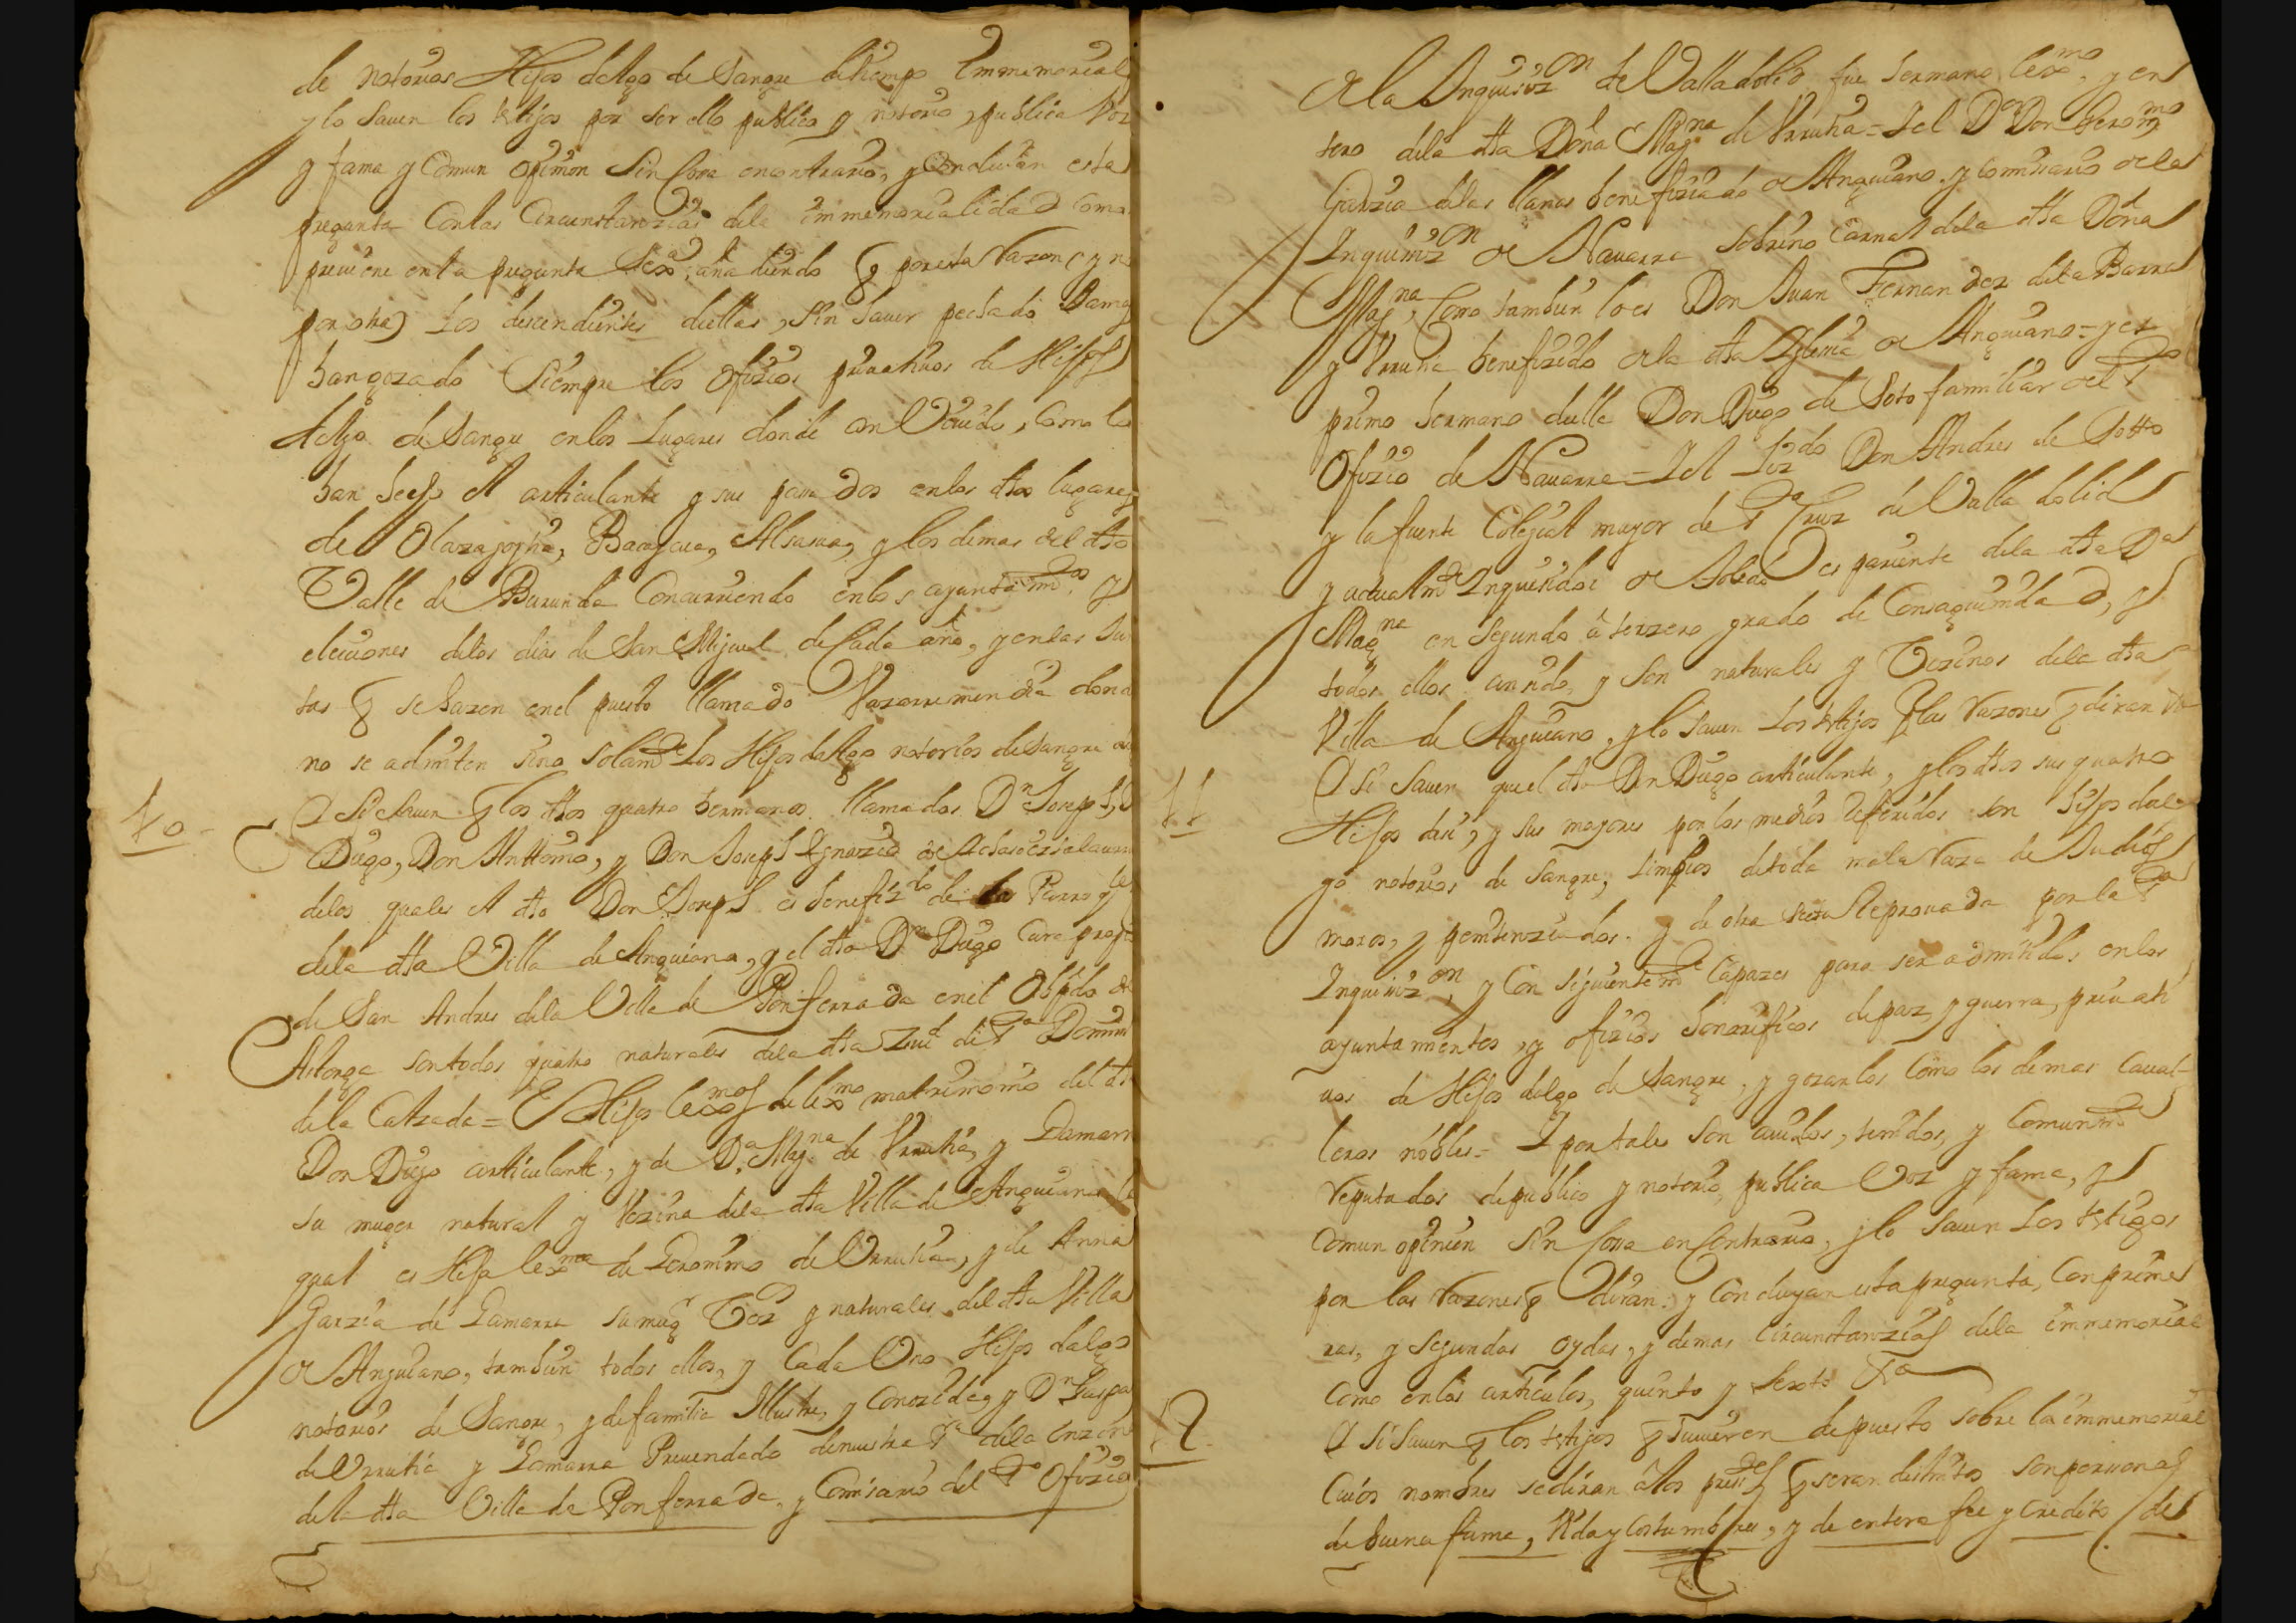 de notorios Hijos dalgo de Sangre de tiempo Immemorial
y lo Sauen los testigos por ser ello publico y notorio, publica Voz
y fama y Comun opinion Sin Cosa encontrario, y Concluian esta
pregunta Con las Circunstanzias dela immemorialidad Como
preuiene en la pregunta Sexa, aña diendo q por esta Razon (y n
por otra) Los descendientes dellas, Sin hauer pechado Jamas
han gozado Siempre los ofizios priuatiuos de Hijos
dalgo de Sangre en los Lugares donde an Viuido, Como lo
han hecho el articulante y sus pasados en los dhos lugares
de Olazagoytia, Bacaycua, Alsasua, y los demas del dho
Valle de Burunda Concurriendo en los ayuntamtos y
elecciones delos dias de San Miguel de Cada año, y en las Jun
tas q se hazen en el puesto llamado Vazarremendia donde
no se admiten sino solamte Los Hijos dalgo notorios de Sangre
10 - Y Si Sauen q los dhos quatro hermanos llamados Dn Joseph, D
Diego, Don Anttonio, y Don Joseph Ygnazio de
delos quales el dho Don Joseph es benefizdo de la Parroql
dela dha Villa de Anguiano, y el dho Dn Diego Cura propio
de San Andres dela Villa de Ponferrada en el Obispdo de
Astorga son todos quatro naturales dela dha Ziud de Sto Domin
dela Calzada = E Hijos lexmos de lexmo matrimonio del dho
Don Diego articulante, y de Da Magna de Vrrutia, y Gamarra
su muger natural y Vezina dela dha Villa de Anguiano la
qual es Hija lexma de Geronimo de Vrrutia, y de Anna
Garzia de Gamarra su mugr Vezos y naturales del dha Villa
de Anguiano, tambien todos ellos, y Cada Vno Hijos dalgo
notorios de Sangre, y de familia Illustre, y Conozida, y Dn Gaspar
de Vrrutia y Gamarra Preuendado de nuestra Sra dela Enzina
dela dha Villa de Ponferrada, y Comisario del Sto Ofizio
de la Inquisizon de Valladolid fue hermano lexmo, y en
tero dela dha Doña Magna de Vrrutia = Y el Dor Don Geronmo
Garzia delas llanas benefiziado de Anguiano y Commisario de la
Inquisizon de Nauarra sobrino Carnal dela dha Doña
Magna, Como tambien lo es Don Juan Fernandez dela Barra
y Vrrutia benefiziado de la dha Iglesia de Anguiano = y es
primo hermano della Don Diego de Soto familiar del Sto
Ofizio de Nauarra = Y el Lizdo Don Andres de Sotto
y la fuente Colegial mayor de Sta Cruz de Valladolid
y actualmte Inquisidor de Toledo es pariente dela dha Da
Magna en segundo â terzero grado de Consaguinidad, y
todos ellos an sido, y son naturales y Vezinos dela dha
Villa de Anguiano, y lo Sauen Los testigos por las Razones q diran
11 Y Si Sauen que el dho Dn Diego articulante, y los dhos sus quatro
Hijos y sus mayores por los medios referidos son hijos dal
go notorios de Sangre, limpios de toda mala Raza de Judios
moros, y penitenziados, y de otra secta Reprouada por la Sta
Inquisizon, y Con siguientemte Capazes para ser admitidos en los
ayuntamientos, y ofizios honrrificos de paz y guerra, priuati
uos de Hijos dalgo de Sangre, y gozarlos Como los demas Caual-
leros nobles = Y por tales son auidos, tenidos, y Comunmte
reputados de publico y notorio, publica Voz y fama, y
Comun opinion Sin Cosa en Contrario, y lo Sauen Los testigos
por las Razones q diran: y Concluyan esta pregunta, Con prime
ras, y segundas oydas, y demas Circunstanzias dela immemorial
Como en los articulos, quinto y Sexto
12. Y Si Sauen q los testigos q huuieren depuesto sobre la immemorial
Cuios nombres se diran â los q seran distintos son personas
de buena fama, Vida y Costumbres, y de entera fee y Credito / de